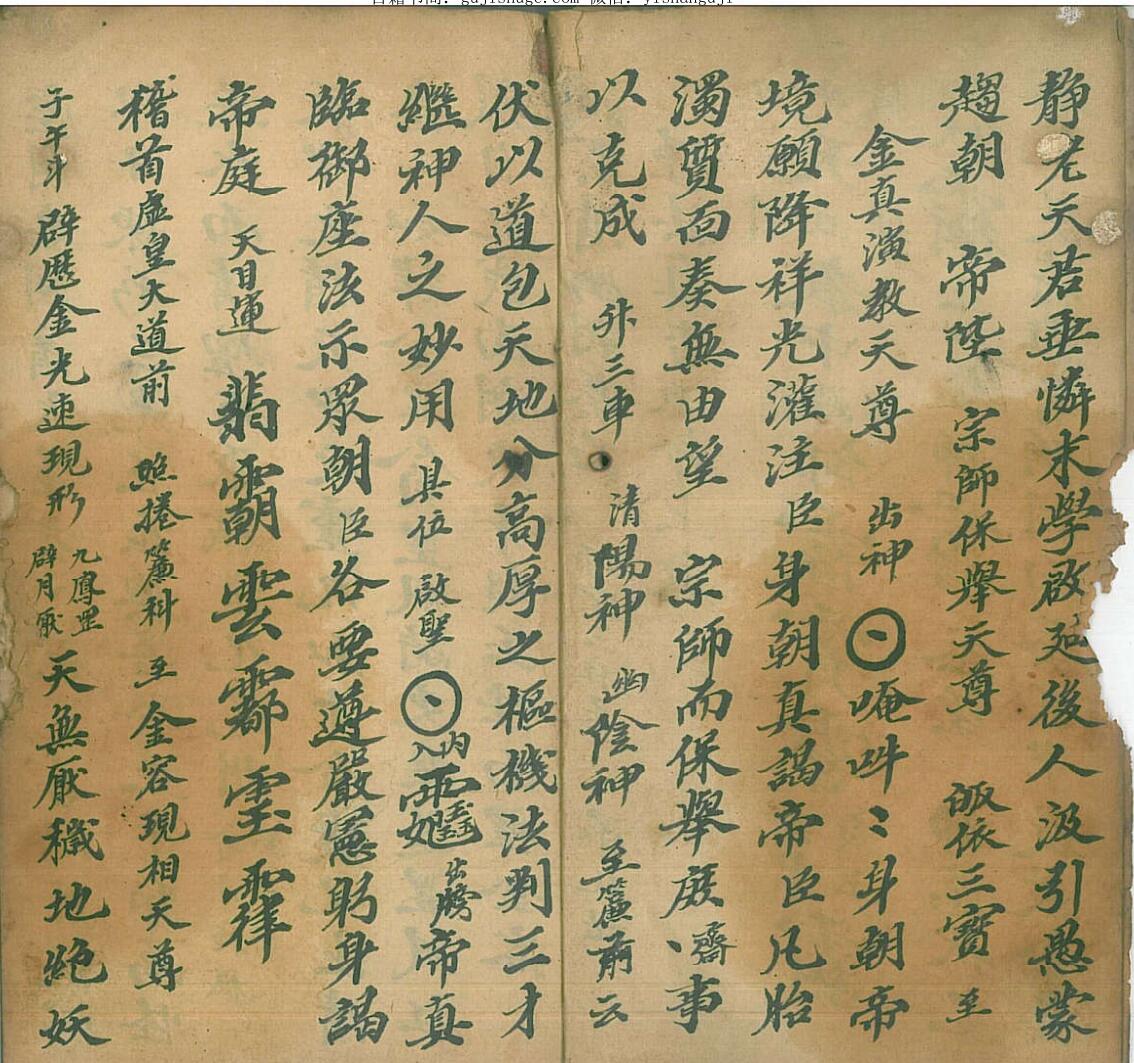 古籍书阁：gujishuge.com 微信：yishanguji
静老天君垂憐末學啟延後人汲引愚蒙
趨朝 帝陛 宗師保舉天尊 皈依三寶 至
金真演教天尊 出神 唵吽〻身朝帝
境願降祥光灌注臣身朝真謁帝臣凡胎
濁質面奏無由望 宗師而保舉庶、齋事
以克成 升三車 清陽神 幽陰神 至簾前云
伏以道包天地分高厚之樞機法判三才
繼神人之妙用 具位 啟聖 入內 出榜 帝真
臨御座法示眾朝臣各要遵嚴憲躬身謁
帝庭 天目運
稽首虛皇大道前 照捲簾科 至金容現相天尊
子午斗 辟歷金光速現形 九鳳罡 辟月厭 天無厭穢地絕妖